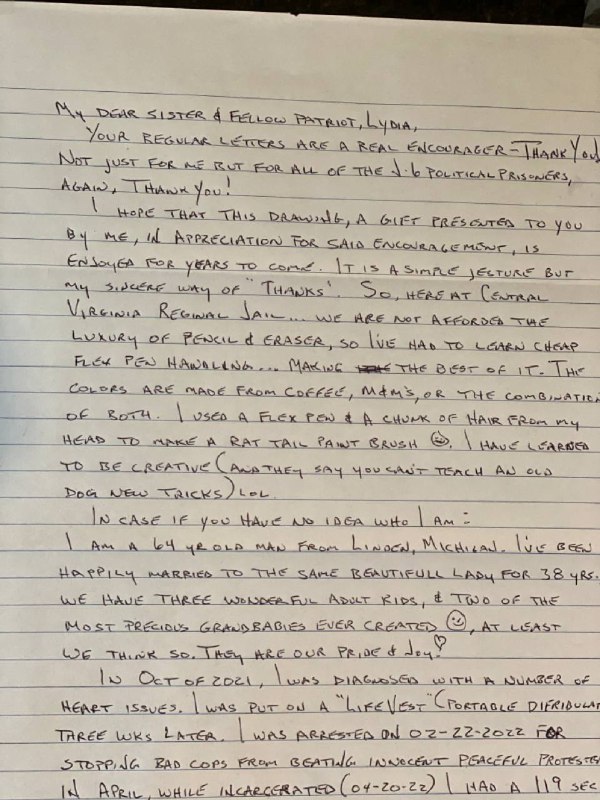 My dear sister & fellow patriot, Lydia,
Your regular letters are a real encourager - Thank You!
Not just for me but for all of the J-6 political prisoners,
again, Thank you!
I hope that this drawing, a gift presented to you
by me, in appreciation for said encouragement, is
enjoyed for years to come. It is a simple jecture but
my sincere way of "Thanks". So, here at Central
Virginia Reginal Jail... we are not afforded the
luxury of pencil & eraser, so I've had to learn cheap
flex pen handling... making the best of it. The
colors are made from coffee, M&M's, or the combinatio
of both. I used a flex pen & a chunk of hair from my
head to make a rat tail paint brush ☺. I have learned
to be creative (and they say you can't teach an old
dog new tricks) LOL.
In case if you have no idea who I am:
I am a 64 yr old man from Linden, Michigan. I've been
happily married to the same beautifull lady for 38 yrs.
We have three wonderful adult kids, & two of the
most precious grandbabies ever created ☺, at least
we think so. They are our pride & joy! ♡
In Oct of 2021, I was diagnosed with a number of
heart issues. I was put on a "LifeVest" (portable difribular
three wks later. I was arrested on 02-22-2022 for
stopping bad cops from beating innocent peaceful proteste
In April, while incarcerated (04-20-22) I had a 119 sec